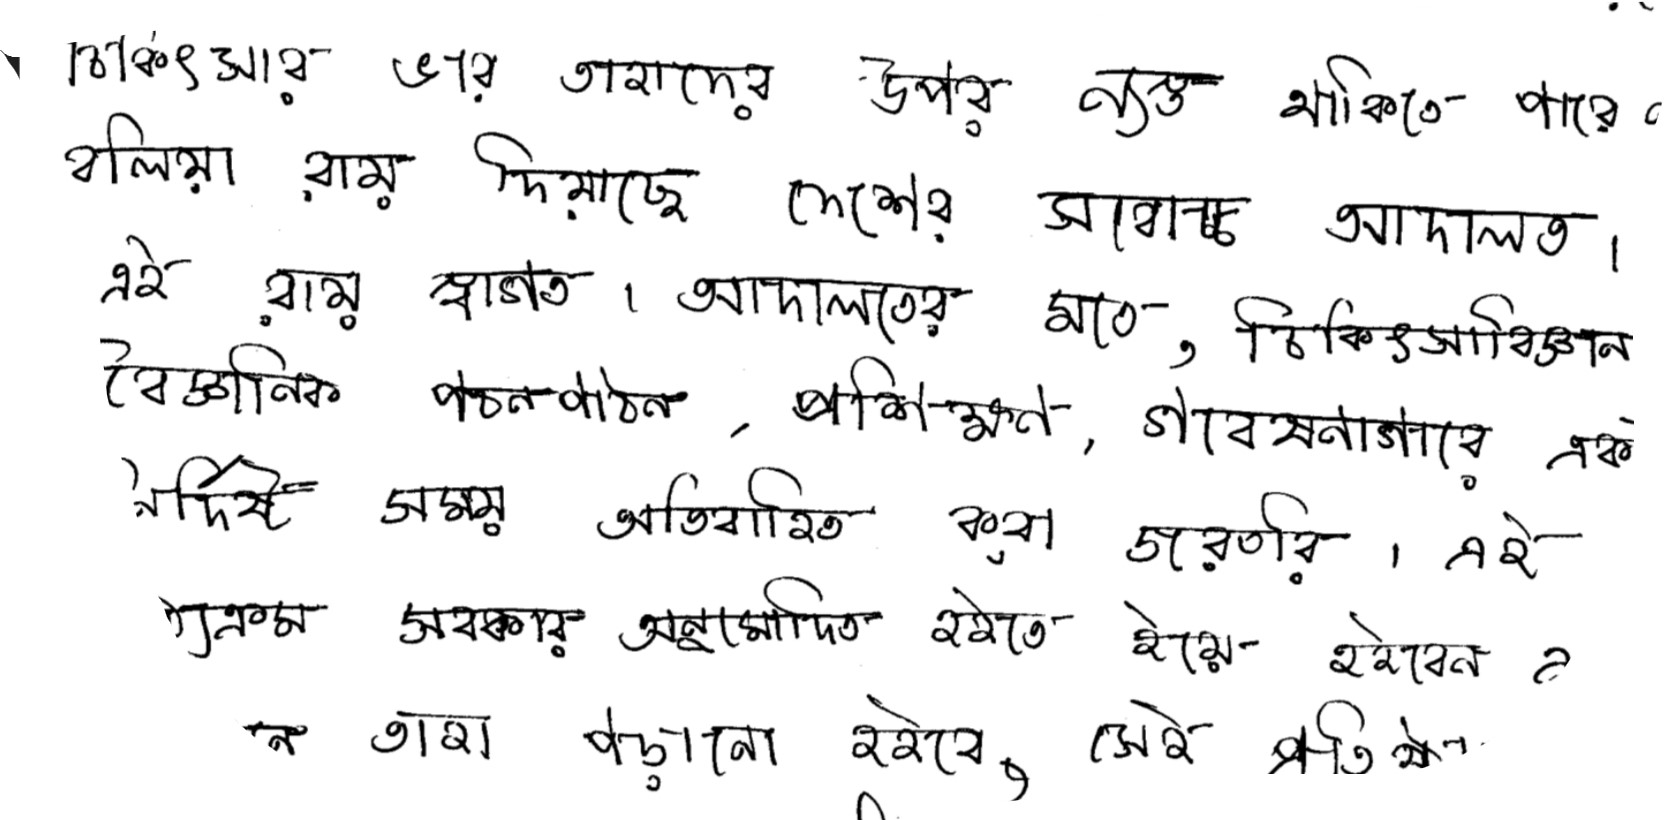 চিকিৎসার ভার তাহাদের উপর ন্যস্ত থাকিতে পারে
বলিয়া রায় দিয়াছে দেশের সর্বোচ্চ আদালত।
এই রায় স্বাগত। আদালতের মতে, চিকিৎসাবিজ্ঞান
বৈজ্ঞানিক পঠনপাঠন, প্রশিক্ষণ, গবেষনাগারে এক
নির্দিষ্ট সময় অতিবাহিত করা জরুরি। এই
সরকার অনুমোদিত হইতে হইবে হইবেন
তাহা পড়ানো হইবে, সেই